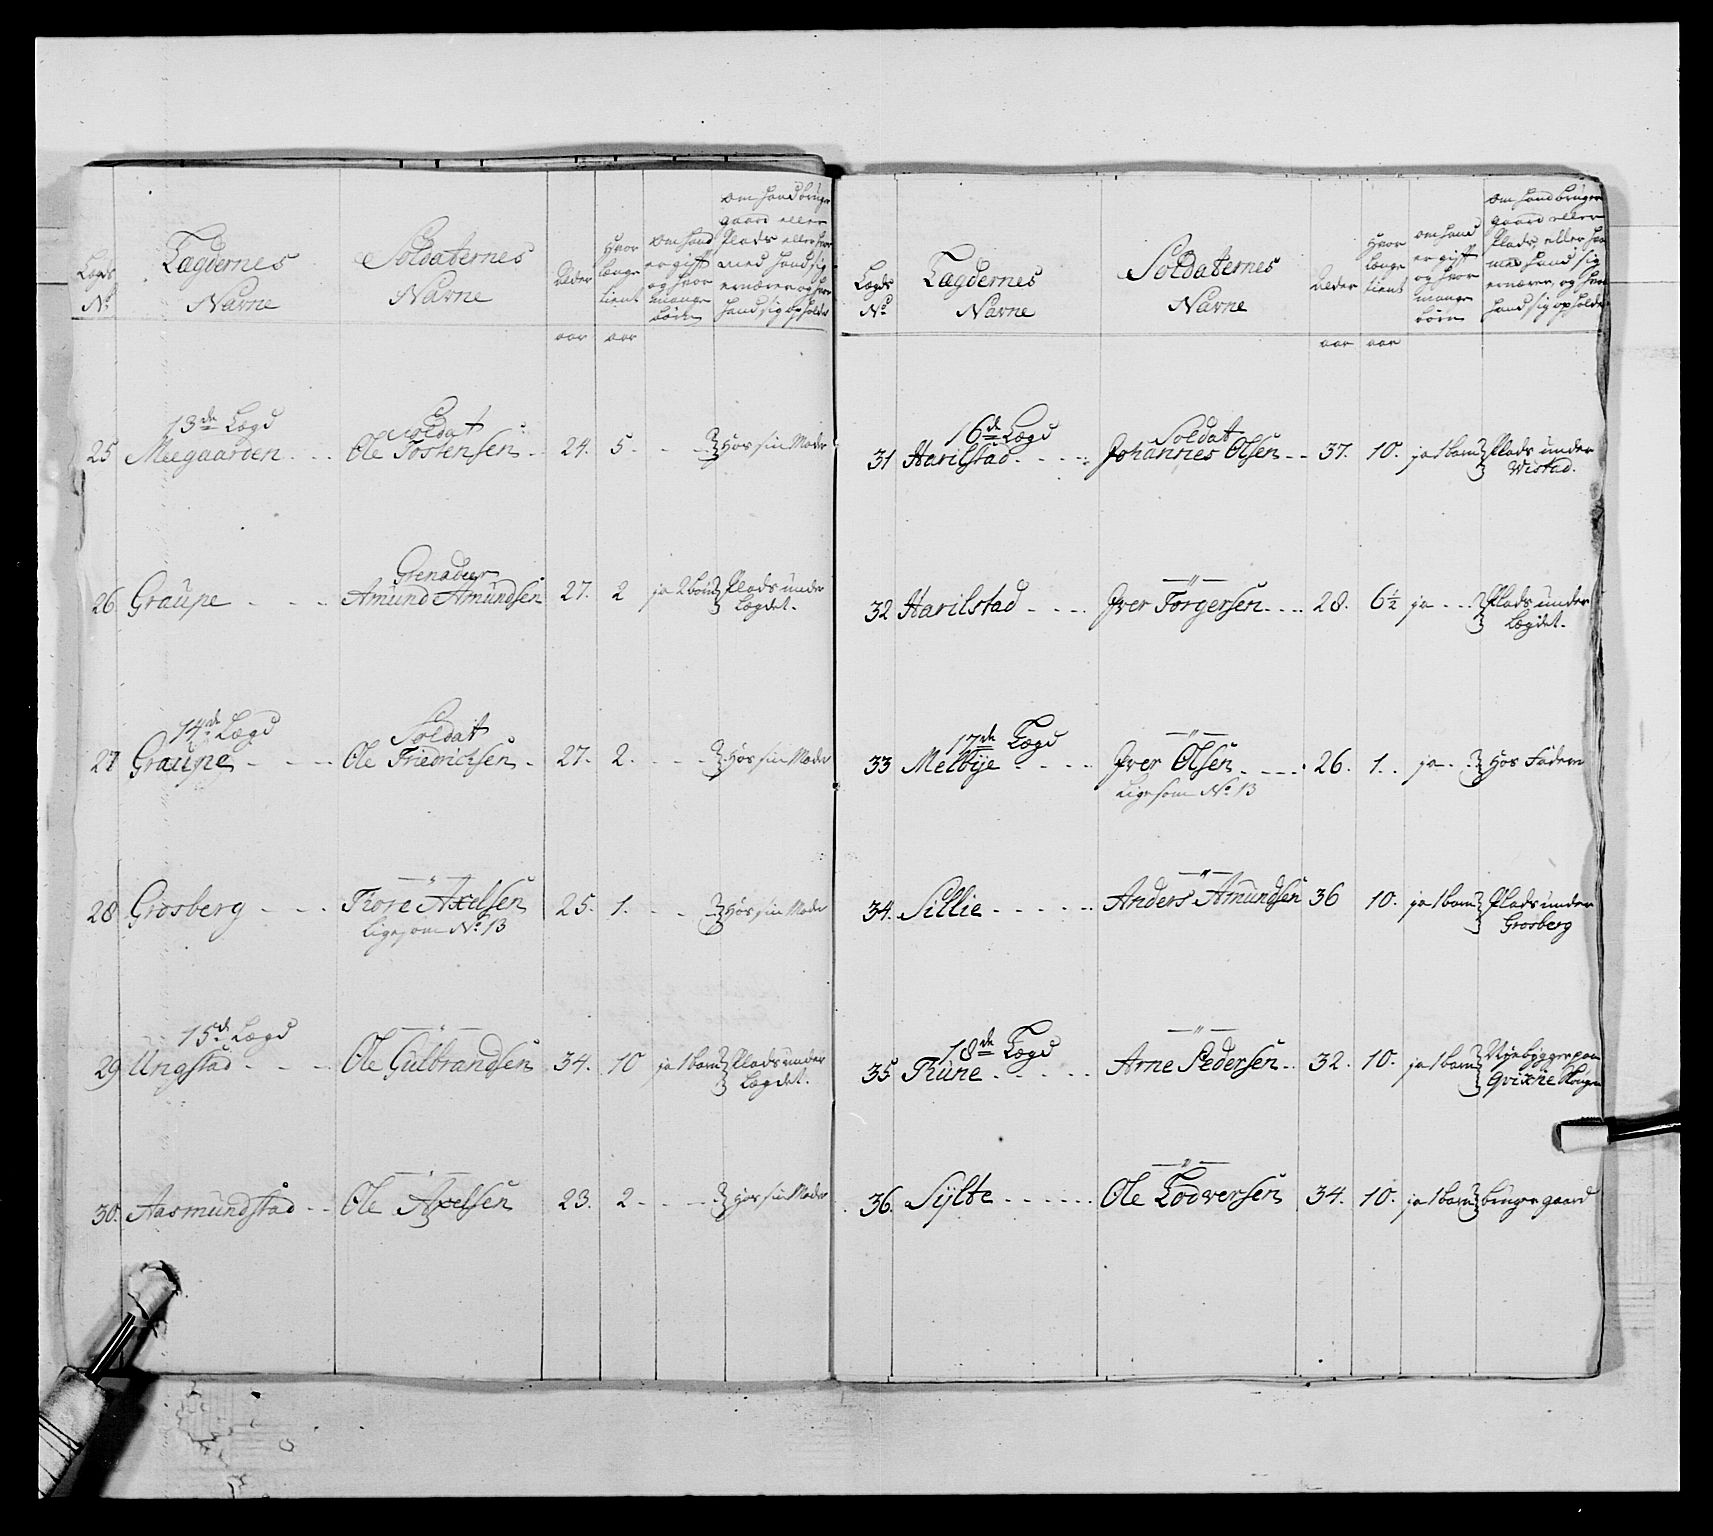 Lægds No.
Lægdernes Navne
Soldaternes Navne
Alder
Hvor længe tient
om hand er gift og hvor mange børn
om hand bruger gaard eller Plads eller hvor med hand sig ernærer og hvor hand sig opholder
aar aar
13de Lægd Soldat
25 Meegaarden Ole Tostensen 24. 5 Hos sin Moder
Grenadeer
26 Graupe Amund Amundsen 27. 2 ja 2 børn Plads under Lægdet.
14de Lægd Soldat
27 Graupe Ole Friedrichsen 27. 2. Hos sin Moder
—"—
28 Grosberg Tiore Axelsen 25. 1. Hos sin Moder
ligesom No. 13
15de Lægd —"—
29 Ungstad Ole Gulbrandsen 34. 10 ja 1 barn Plads under Lægdet.
—"—
30. Aasmundstad Ole Axelsen 23. 2 Hos sin Moder
Lægds No.
Lægdernes Navne
Soldaternes Navne
Alder
Hvor længe tient
om hand er gift og hvor mange børn
om hand bruger gaard eller Plads, eller hvor med hand sig ernærer, og hvor hand sig opholder
aar aar
16de Lægd Soldat
31 Harilstad Johannes Olsen 37. 10. ja 1 barn Plads under Wistad.
—"—
32 Harilstad Iver Torgersen 28. 6½ ja Plads under Lægdet.
17de Lægd —"—
33 Melbye Iver Olsen 26. 1. ja Hos Faderen
ligesom No. 13
—"—
34. Sillie Anders Amundsen 36 10. ja 1 barn Plads under Grosberg
18de Lægd —"—
35 Thune Arne Pedersen 32. 10. ja 1 barn Nyebygger paa Qvixne
—"—
36. Sylte Ole Lodversen 34. 10. ja 1 barn bruger gaard